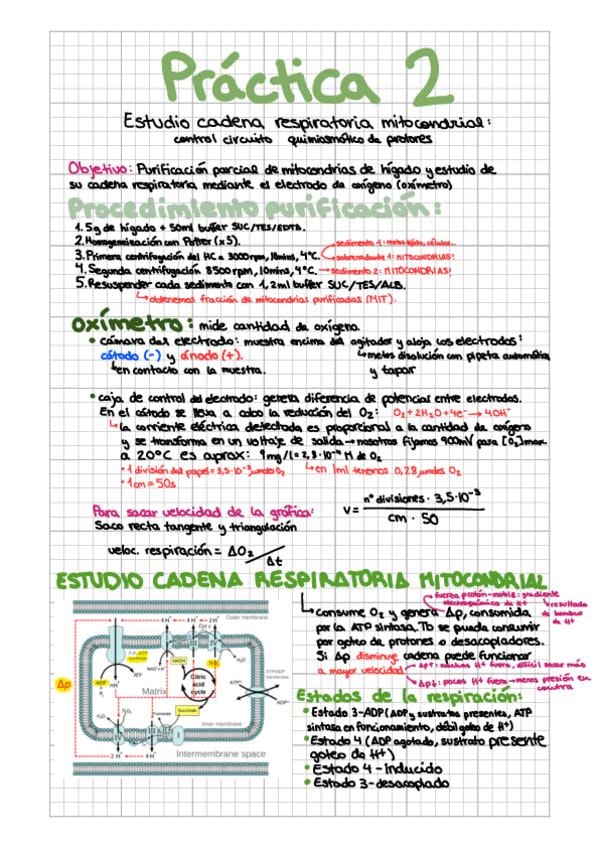 Práctica 2
Estudio cadena respiratoria mitocondrial:
control circuito quimiosmótico de protones
Objetivo: Purificación parcial de mitocondrias de hígado y estudio de
su cadena respiratoria mediante el electrodo de oxígeno (oxímetro)
Procedimiento purificación:
1. 5g de hígado + 50ml buffer SUC/TES/EDTA.
2. Homogeneización con Potter (x5).
3. Primera centrifugación del HC a 3000rpm, 10mins, 4°C.
sedimento 1: restos tejido, células...
sobrenadante 1: MITOCONDRIAS!
4. Segunda centrifugación 8500rpm, 10mins, 4°C. → sedimento 2: MITOCONDRIAS!
5. Resuspender cada sedimento con 1,2ml buffer SUC/TES/ALB.
obtenemos fracción de mitocondrias purificadas (MIT).
oxímetro: mide cantidad de oxígeno.
• cámara del electrodo: muestra encima del agitador y aloja los electrodos:
cátodo (-) y ánodo (+).
metes disolución con pipeta automática
y tapar
en contacto con la muestra.
• caja de control del electrodo: genera diferencia de potencial entre electrodos.
En el cátodo se lleva a cabo la reducción del O₂: O₂+2H₂O+4e⁻→4OH⁻
la corriente eléctrica detectada es proporcional a la cantidad de oxígeno
y se transforma en un voltaje de salida → nosotros fijamos 900mV para [O₂]max
a 20°C es aprox: 9mg/l=2,8·10⁻⁴ M de O₂
• 1 división del papel=3,5·10⁻³ μmdes O₂
en 1ml tenemos 0,28 μmdes O₂
• 1cm = 50s
Para sacar velocidad de la gráfica:
Saco recta tangente y triangulación
V = nº divisiones · 3,5·10⁻³ / cm · 50
veloc. respiración = ΔO₂/Δt
ESTUDIO CADENA RESPIRATORIA MITOCONDRIAL
fuerza protón-motriz: gradiente
electroquímico de H+
resultado
de bombeo
de H+
Consume O₂ y genera Δp, consumida
por la ATP sintasa. Tb se puede consumir
por goteo de protones o desacopladores.
Si Δp disminuye cadena puede funcionar
a mayor velocidad
Δp↑: muchos H+ fuera, difícil sacar más
Δp↓: pocos H+ fuera → menos presión en
contra
Estados de la respiración:
• Estado 3-ADP (ADP y sustratos presentes, ATP
sintasa en funcionamiento, débil goteo de H+)
• Estado 4 (ADP agotado, sustrato presente
goteo de H+)
• Estado 4 - inducido
• Estado 3-desacoplado
Δp
Outer membrane
4 H⁺
4 H⁺
2 H⁺
Cyt c
ADP
Pᵢ
ATP
NADH
NAD⁺+H⁺
H₂O
Matrix
Citric
acid
cycle
ATP/ADP
translocase
ATP
ADP
H₂O
Fumarate
Succinate
IV
III
II
I
Inner membrane
2 H⁺
4 H⁺
Intermembrane space